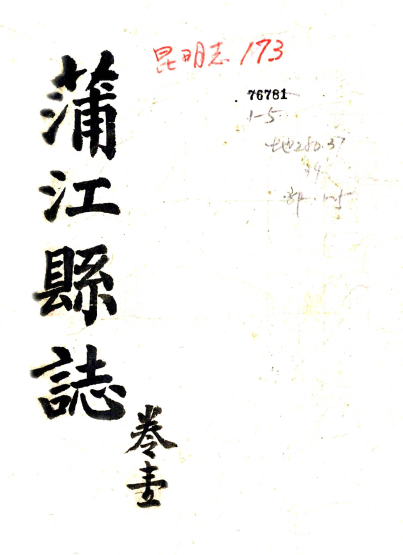 昆明志 173
76781
1-5
蒲江縣誌
卷壹